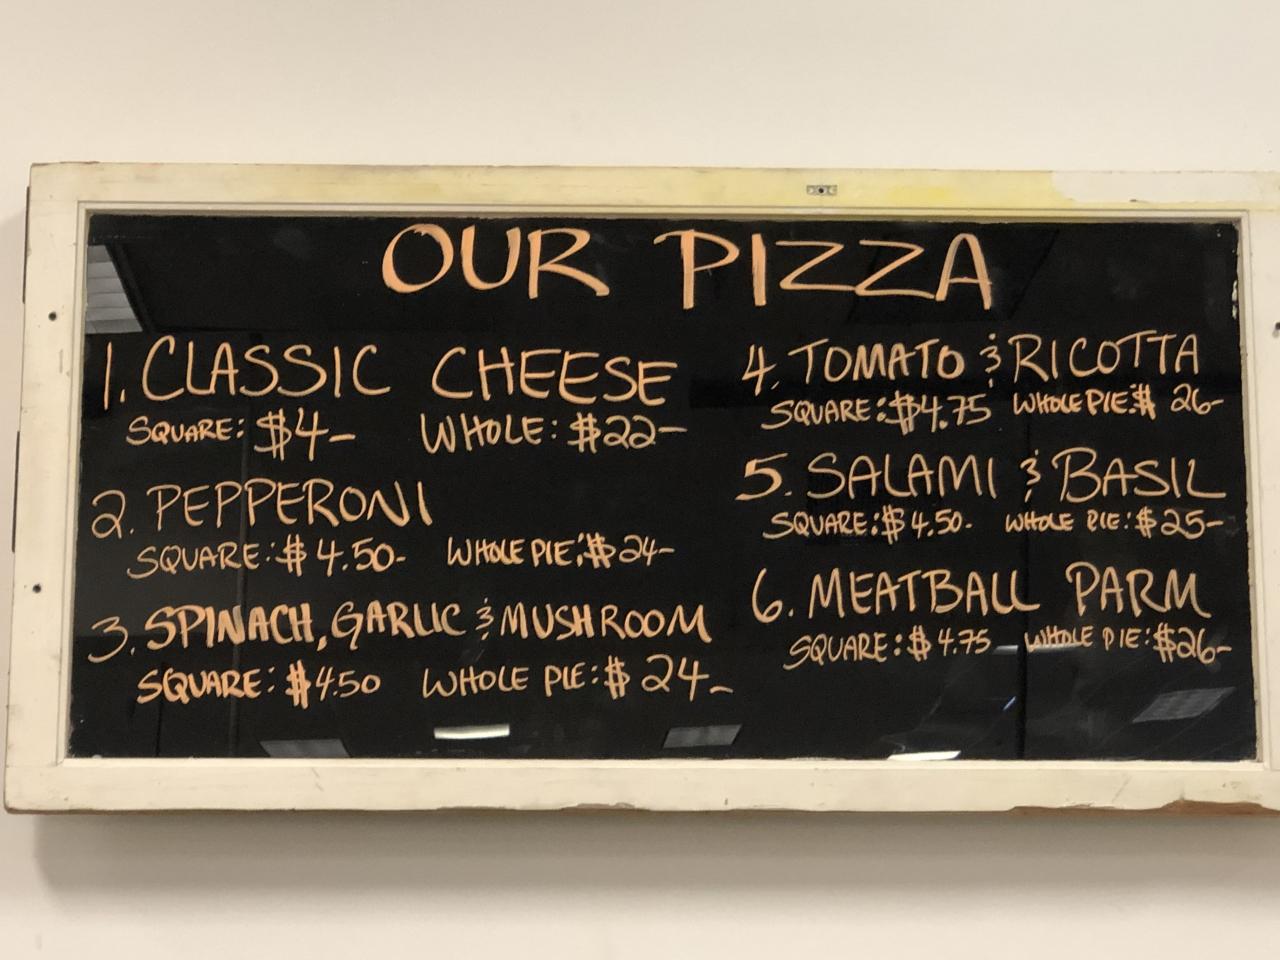 OUR PIZZA
1. CLASSIC CHEESE
SQUARE: $4- WHOLE: $22-
2. PEPPERONI
SQUARE: $4.50- WHOLE PIE: $24-
3. SPINACH, GARLIC & MUSHROOM
SQUARE: $4.50 WHOLE PIE: $24-
4. TOMATO & RICOTTA
SQUARE: $4.75 WHOLE PIE: $26-
5. SALAMI & BASIL
SQUARE: $4.50- WHOLE PIE: $25-
6. MEATBALL PARM
SQUARE: $4.75 WHOLE PIE: $26-